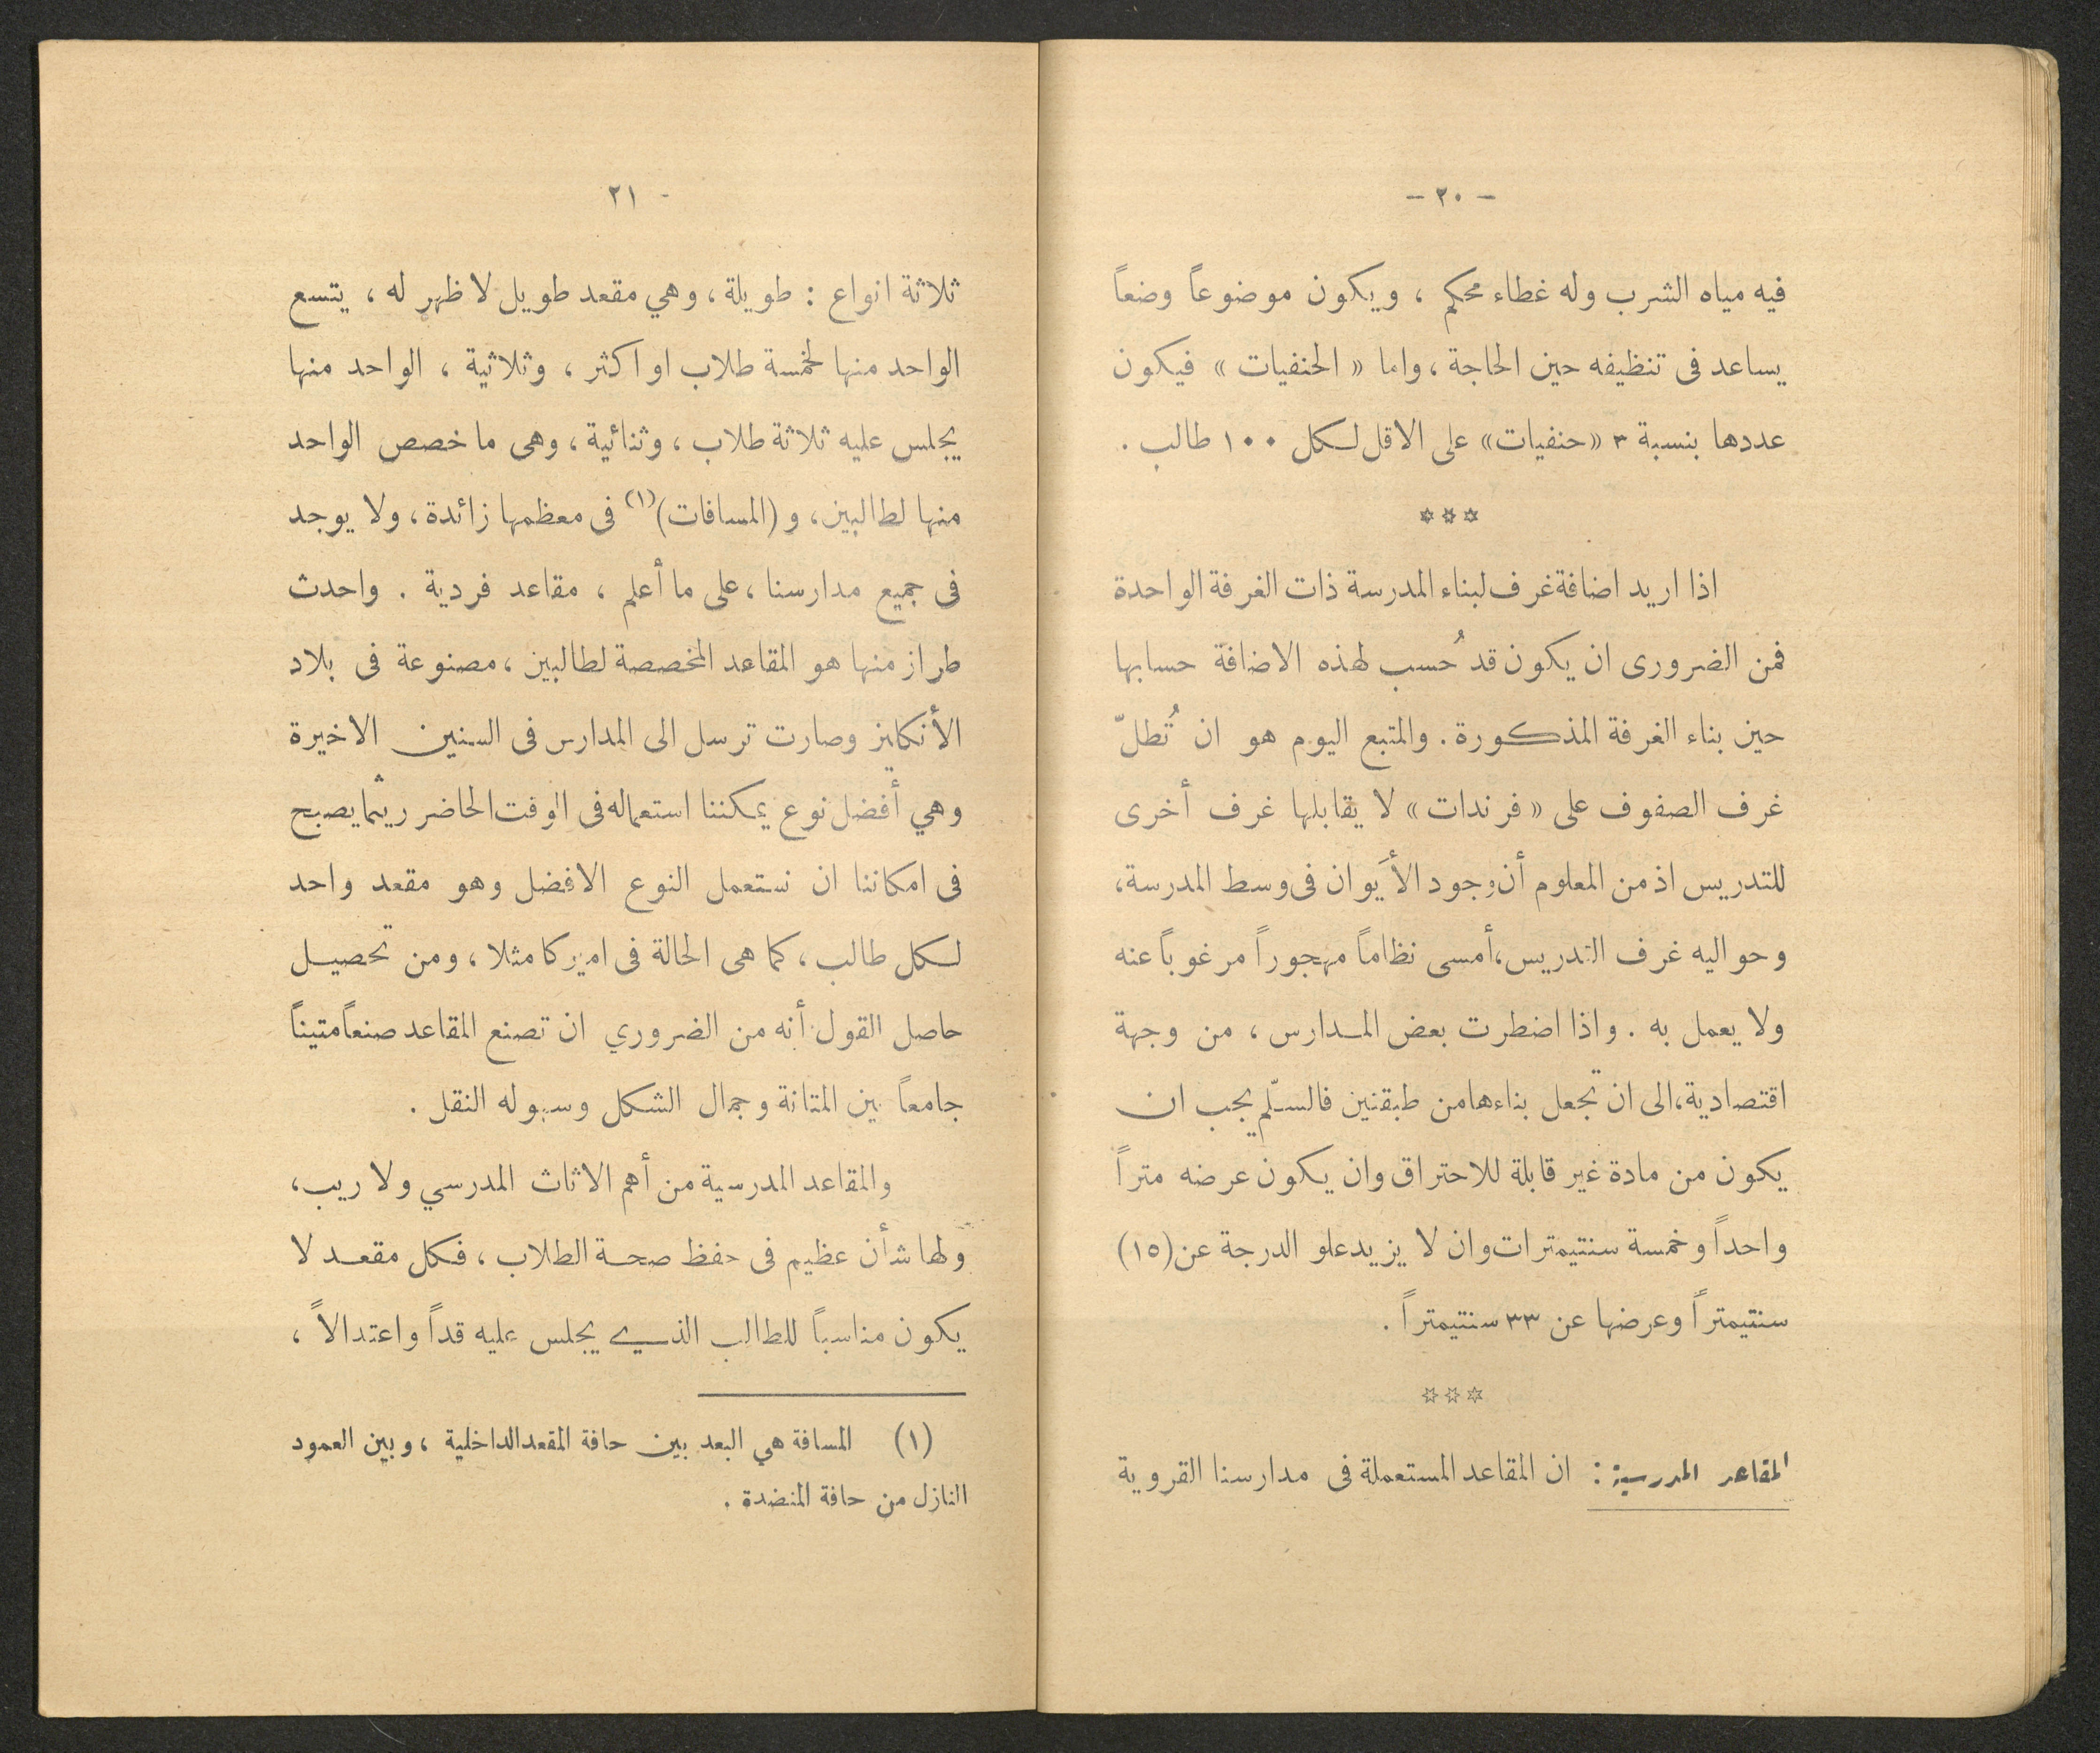 - ٢٠ -
فيه مياه الشرب وله غطاء محكم ، ويكون موضوعاً وضعاً
يساعد فى تنظيفه حين الحاجة ، واما « الحنفيات » فيكون
عددها بنسبة ٣ «حنفيات» على الاقل لكل ١٠٠ طالب .
***
اذا اريد اضافة غرف لبناء المدرسة ذات الغرفة الواحدة
فمن الضرورى ان يكون قد حُسب لهذه الاضافة حسابها
حين بناء الغرفة المذكورة . والمتبع اليوم هو ان تُطلّ
غرف الصفوف على « فرندات » لا يقابلها غرف أخرى
للتدريس اذ من المعلوم أن وجود الأيَوان فى وسط المدرسة،
وحواليه غرف التدريس، أمسى نظاماً مهجوراً مرغوباً عنه
ولا يعمل به . واذا اضطرت بعض المدارس ، من وجهة
اقتصادية، الى ان تجعل بناءها من طبقتين فالسلّم يجب ان
يكون من مادة غير قابلة للاحتراق وان يكون عرضه متراً
واحداً وخمسة سنتيمترات وان لا يزيد علو الدرجة عن (١٥)
سنتيمتراً وعرضها عن ٣٣ سنتيمتراً .
***
المقاعد المدرسية : ان المقاعد المستعملة فى مدارسنا القروية
- ٢١
ثلاثة انواع : طويلة ، وهي مقعد طويل لا ظهر له ، يتسع
الواحد منها لخمسة طلاب او اكثر ، وثلاثية ، الواحد منها
يجلس عليه ثلاثة طلاب ، وثنائية ، وهى ما خصص الواحد
منها لطالبين، و (المسافات)(١) فى معظمها زائدة ، ولا يوجد
فى جميع مدارسنا ، على ما أعلم ، مقاعد فردية . واحدث
طراز منها هو المقاعد المخصصة لطالبين ، مصنوعة فى بلاد
الأنكليز وصارت ترسل الى المدارس فى السنين الاخيرة
وهي أفضل نوع يمكننا استعماله فى الوقت الحاضر ريثما يصبح
فى امكاننا ان نستعمل النوع الافضل وهو مقعد واحد
لكل طالب ، كما هى الحالة فى اميركا مثلا ، ومن تحصيل
حاصل القول أنه من الضروري ان تصنع المقاعد صنعاً متيناً
جامعاً بين المتانة وجمال الشكل وسهوله النقل .
والمقاعد المدرسية من أهم الاثاث المدرسي ولا ريب،
ولها شأن عظيم فى حفظ صحة الطلاب ، فكل مقعد لا
يكون مناسباً للطالب الذي يجلس عليه قداً واعتدالاً ،
(١) المسافة هي البعد بين حافة المقعد الداخلية ، وبين العمود
النازل من حافة المنضدة .